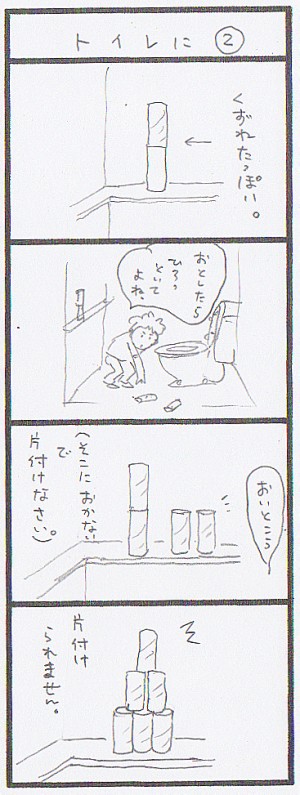 トイレに ②
くずれたっぽい。
おとしたら
ひろっ
といて
よね、
おいとこう
(そこにおかない
で
片付けなさい。)
片付け
られません。